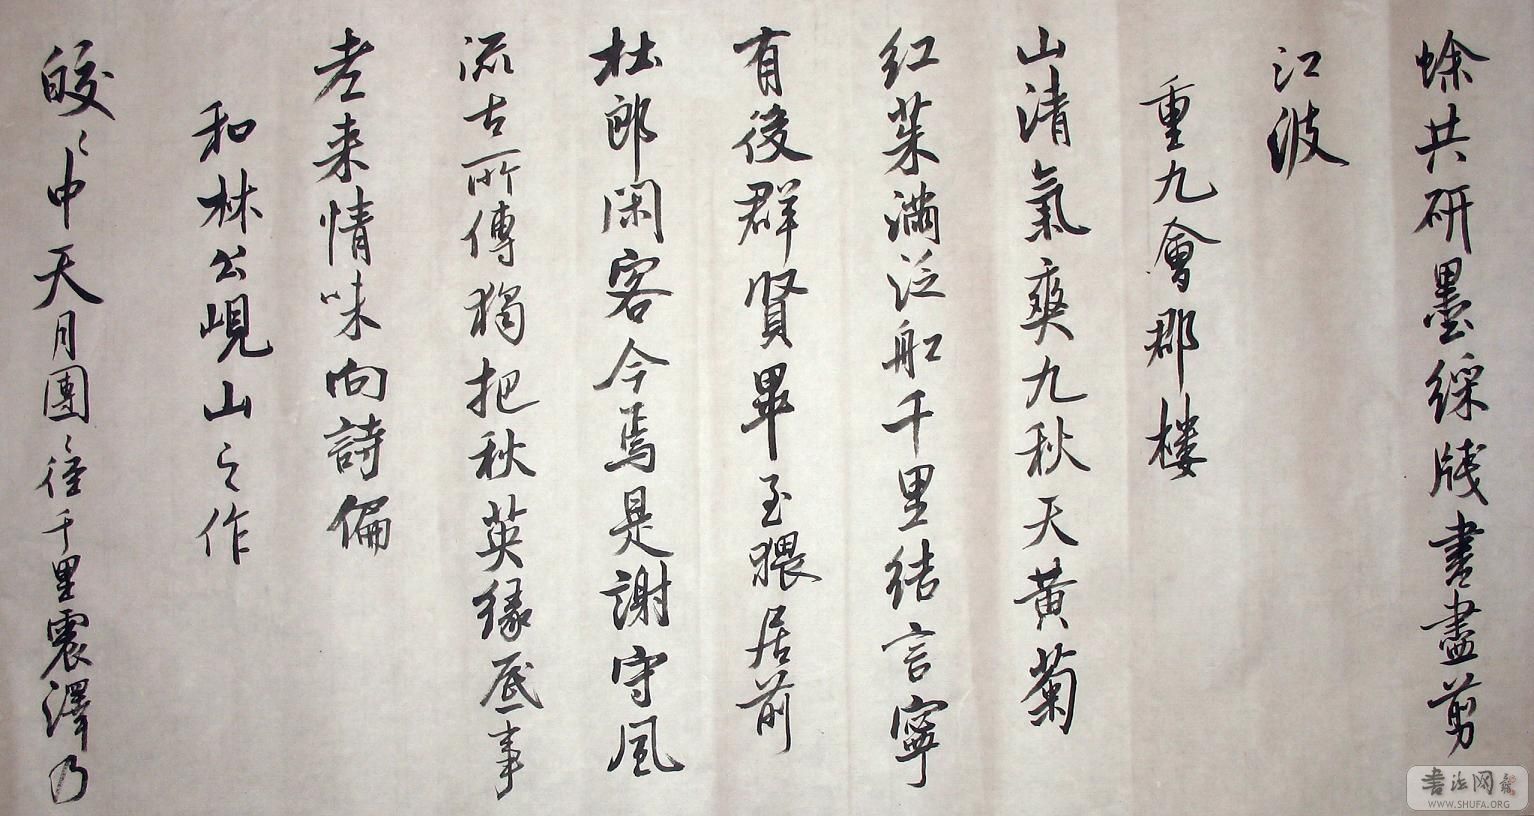 蜍共研墨綵牋書盡剪
江波
重九會郡樓
山清氣爽九秋天黄菊
红茱满泛船千里结言寧
有後群賢畢至猥居前
杜郎闲客今焉是謝守風
流古所傳獨把秋英缘底事
老来情味向詩偏
和林公峴山之作
皎〻中天月團〻徑千里震澤乃
书法网
WWW.SHUFA.ORG